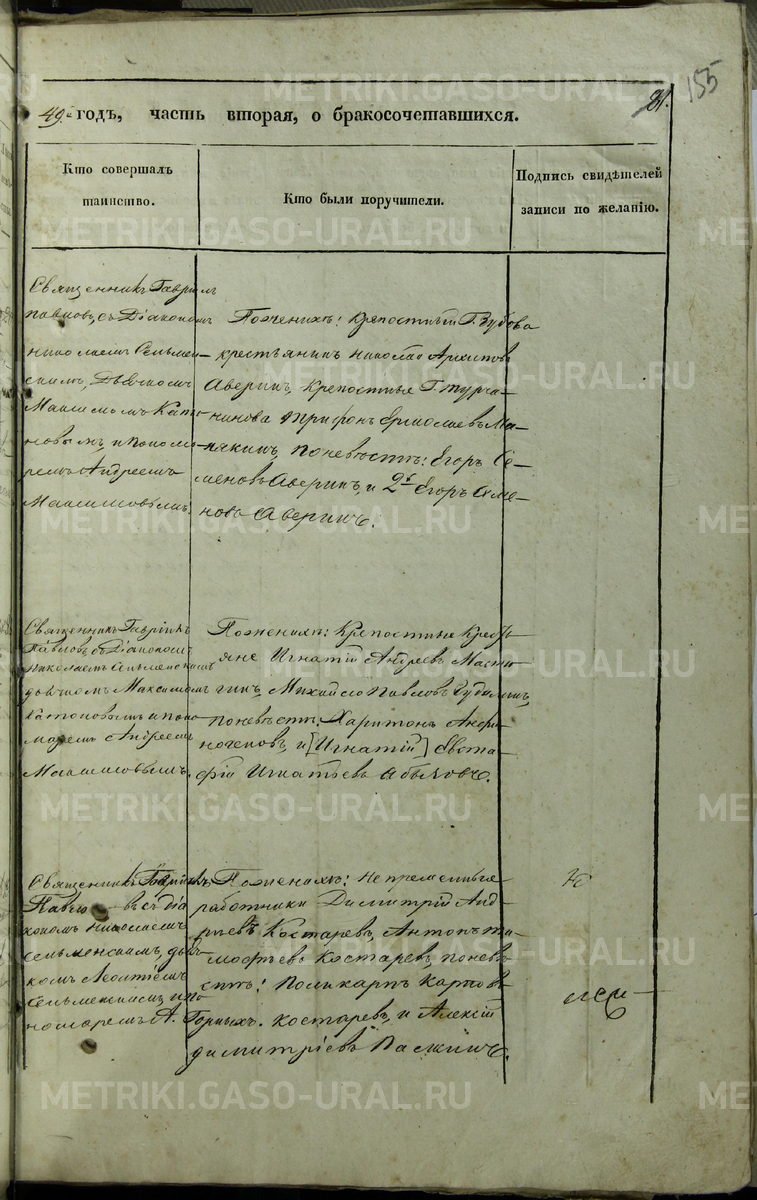 155
49 годъ, часть вторая, о бракосочетавшихся.
81.
Кто совершалъ
таинство.
Кто были поручители.
Подпись свидѣтелей
записи по желанію.
Священникъ Гавріилъ
Павловъ, съ Діакономъ
Николаемъ Сельмен-
скимъ, Дьячкомъ
Максимомъ Капто-
новымъ, и поно-
ремъ Андреемъ
Максимовымъ.
Поженихѣ: крепостный Г. Зубова
крестьянинъ Николай Архиповъ
Аверинъ, крепостные Г. Турча-
нинова Трифонъ Ермолаевъ Ма-
някинъ, поневѣстѣ: Егоръ Се-
меновъ Аверинъ, и 2й Егоръ Семе-
новъ Аверинъ.
Священникъ Гавріилъ
Павловъ съ Діакономъ
Николаемъ Сельменскимъ
дьячкомъ Максимомъ
и поно-
маремъ Андреемъ
Максимовымъ.
Поженихѣ: Крепостные Крестъ-
яне Игнатій Андреевъ
Михайло Павловъ
поневѣстѣ: Харитонъ Андри-
и [Игнатій] Евста-
фій Игнатьевъ
Священникъ Гавріилъ
Павловъ съ діа-
кономъ Николаемъ
Сельменскимъ, дьяч-
комъ Леонтіемъ
Сельменскимъ и по-
номаремъ А. Горныхъ.
Поженихѣ: Непременные
работники Димитрій Анд-
реевъ Костаревъ, Антонъ Ти-
мофѣевъ Костаревъ, поневѣ-
стѣ: Поликарпъ Карпов
Костаревъ, и Алексій
Димитріевъ Паскинъ.
METRIKI.GASO-URAL.RU